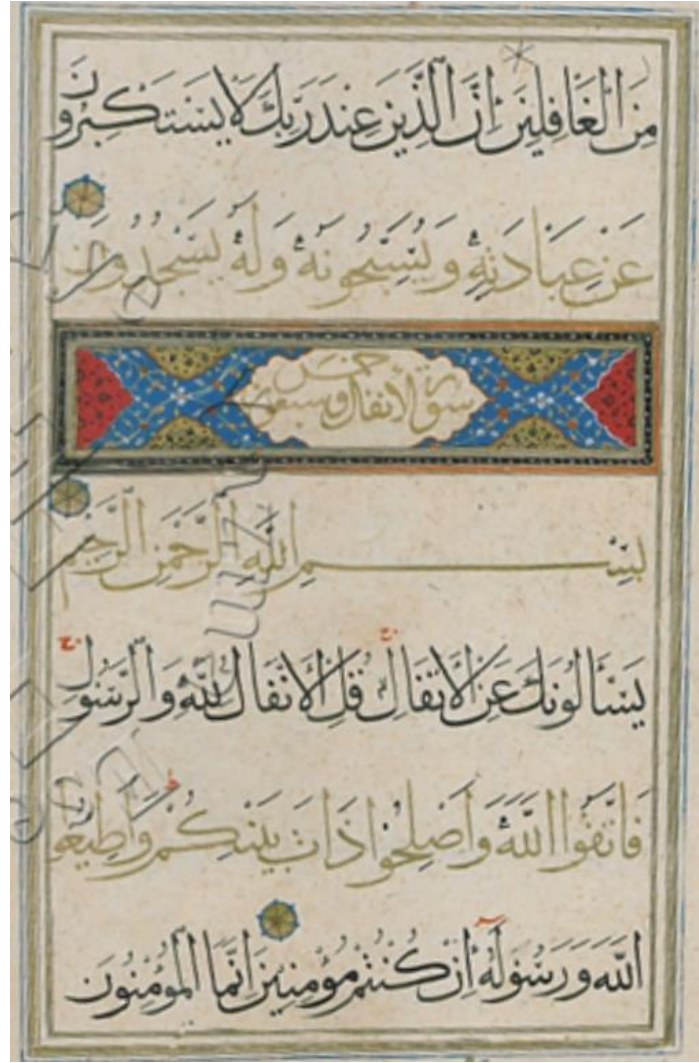 مِنَ الْغَافِلِينَ إِنَّ الَّذِينَ عِنْدَ رَبِّكَ لَا يَسْتَكْبِرُونَ
عَنْ عِبَادَتِهِ وَيُسَبِّحُونَهُ وَلَهُ يَسْجُدُونَ
سورة الأنفال خمس وسبعون
بِسْمِ اللَّهِ الرَّحْمَنِ الرَّحِيمِ
يَسْأَلُونَكَ عَنِ الْأَنْفَالِ قُلِ الْأَنْفَالُ لِلَّهِ وَالرَّسُولِ
فَاتَّقُوا اللَّهَ وَأَصْلِحُوا ذَاتَ بَيْنِكُمْ وَأَطِيعُوا
اللَّهَ وَرَسُولَهُ إِنْ كُنْتُمْ مُؤْمِنِينَ إِنَّمَا الْمُؤْمِنُونَ